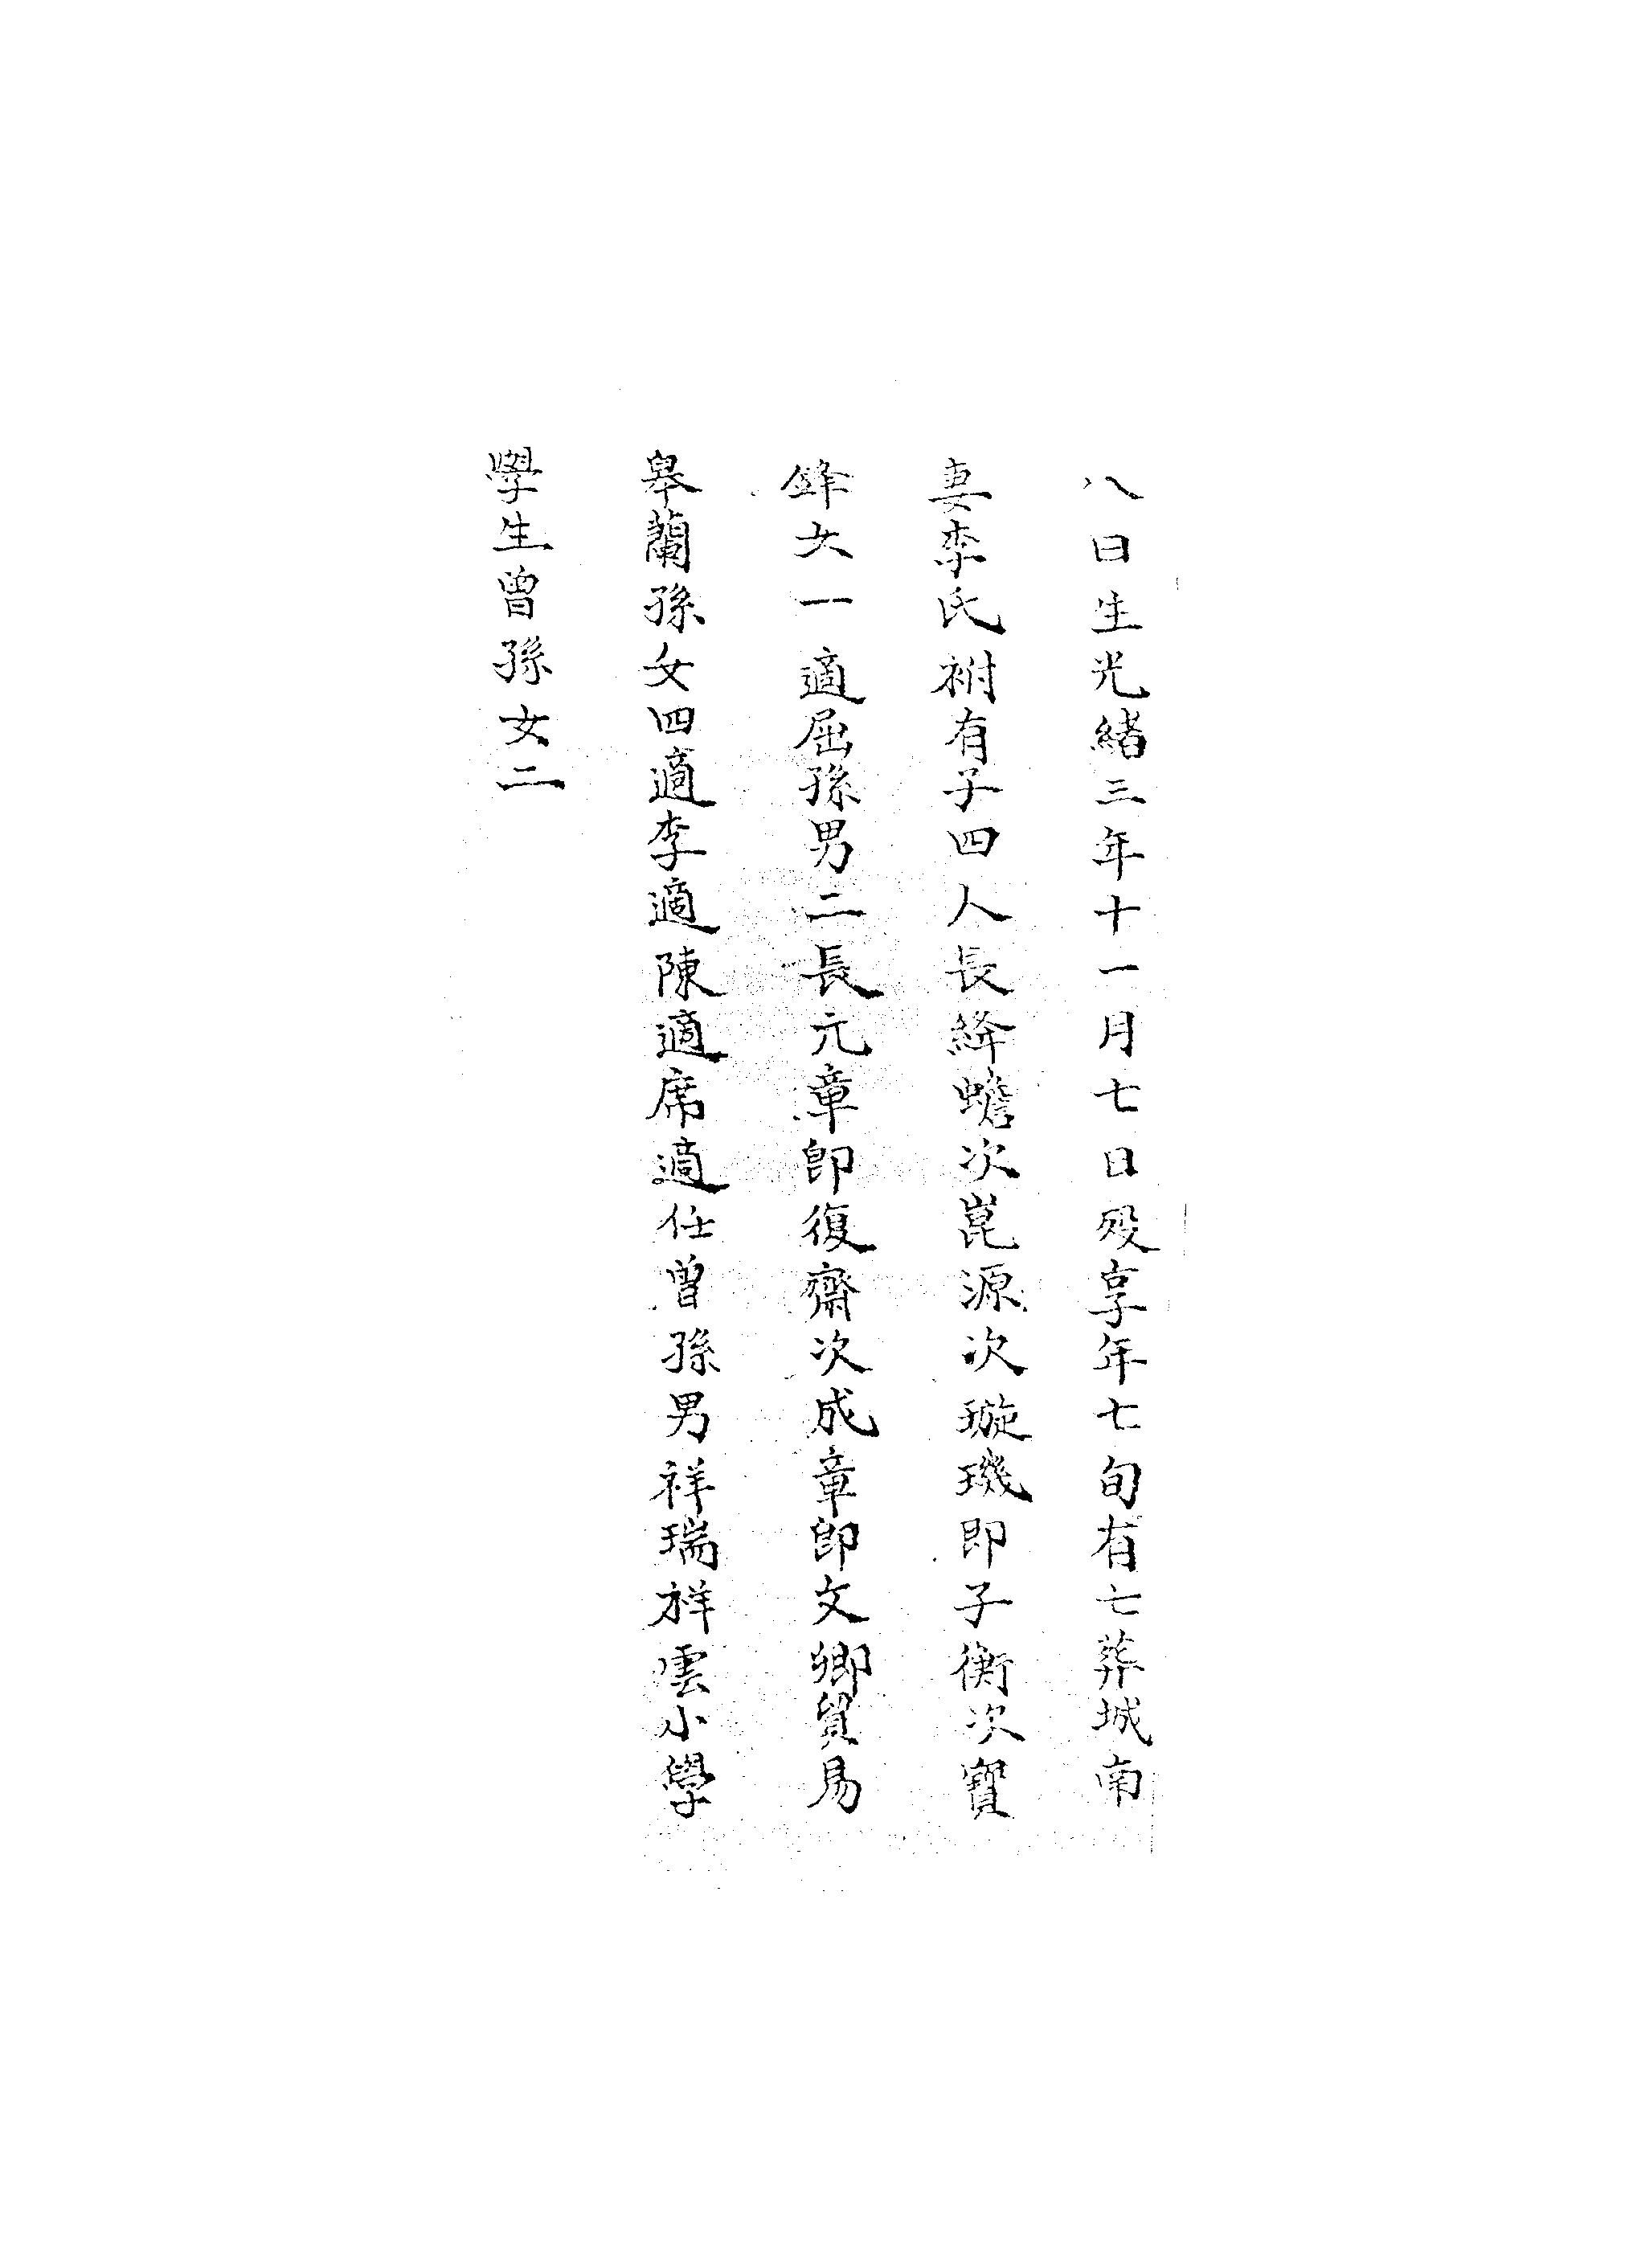 八日生光緒三年十一月七日歿享年七旬有七葬城南
妻李氏祔有子四人長絳蟾次崑源次璇璣即子衡次寶
鋒女一適屈孫男二長元章即復齋次成章即文卿貿易
皋蘭孫女四適李適陳適席適任曾孫男祥瑞祥雲小學
學生曾孫女二